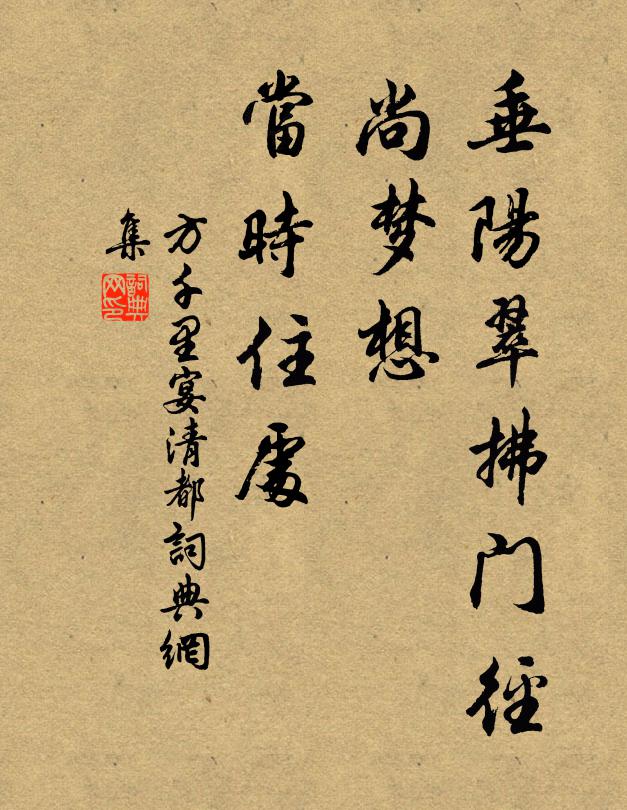 垂陽翠拂门徑
尚梦想
當時住處
方千里宴清都詞典網
集
詞典
网印